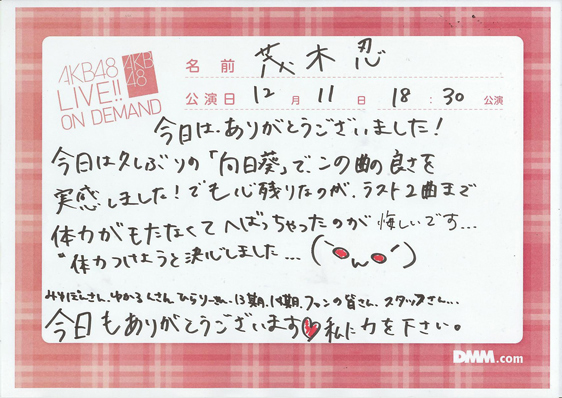 AKB48
LIVE!!
ON DEMAND
AKB
48
名前 茂木忍
公演日 12月11日 18:30公演
今日は、ありがとうございました!
今日は久しぶりの「向日葵」で、この曲の良さを
実感しました!でも心残りなのが、ラスト2曲まで
体力がもたなくてへばっちゃったのが悔しいです...
"体力つけようと決心しました...
さん、ゆかるんさん、ひらりーさん、13期、14期、ファンの皆さん、スタッフさん...
今日もありがとうございます♥私に力を下さい。
DMM.com